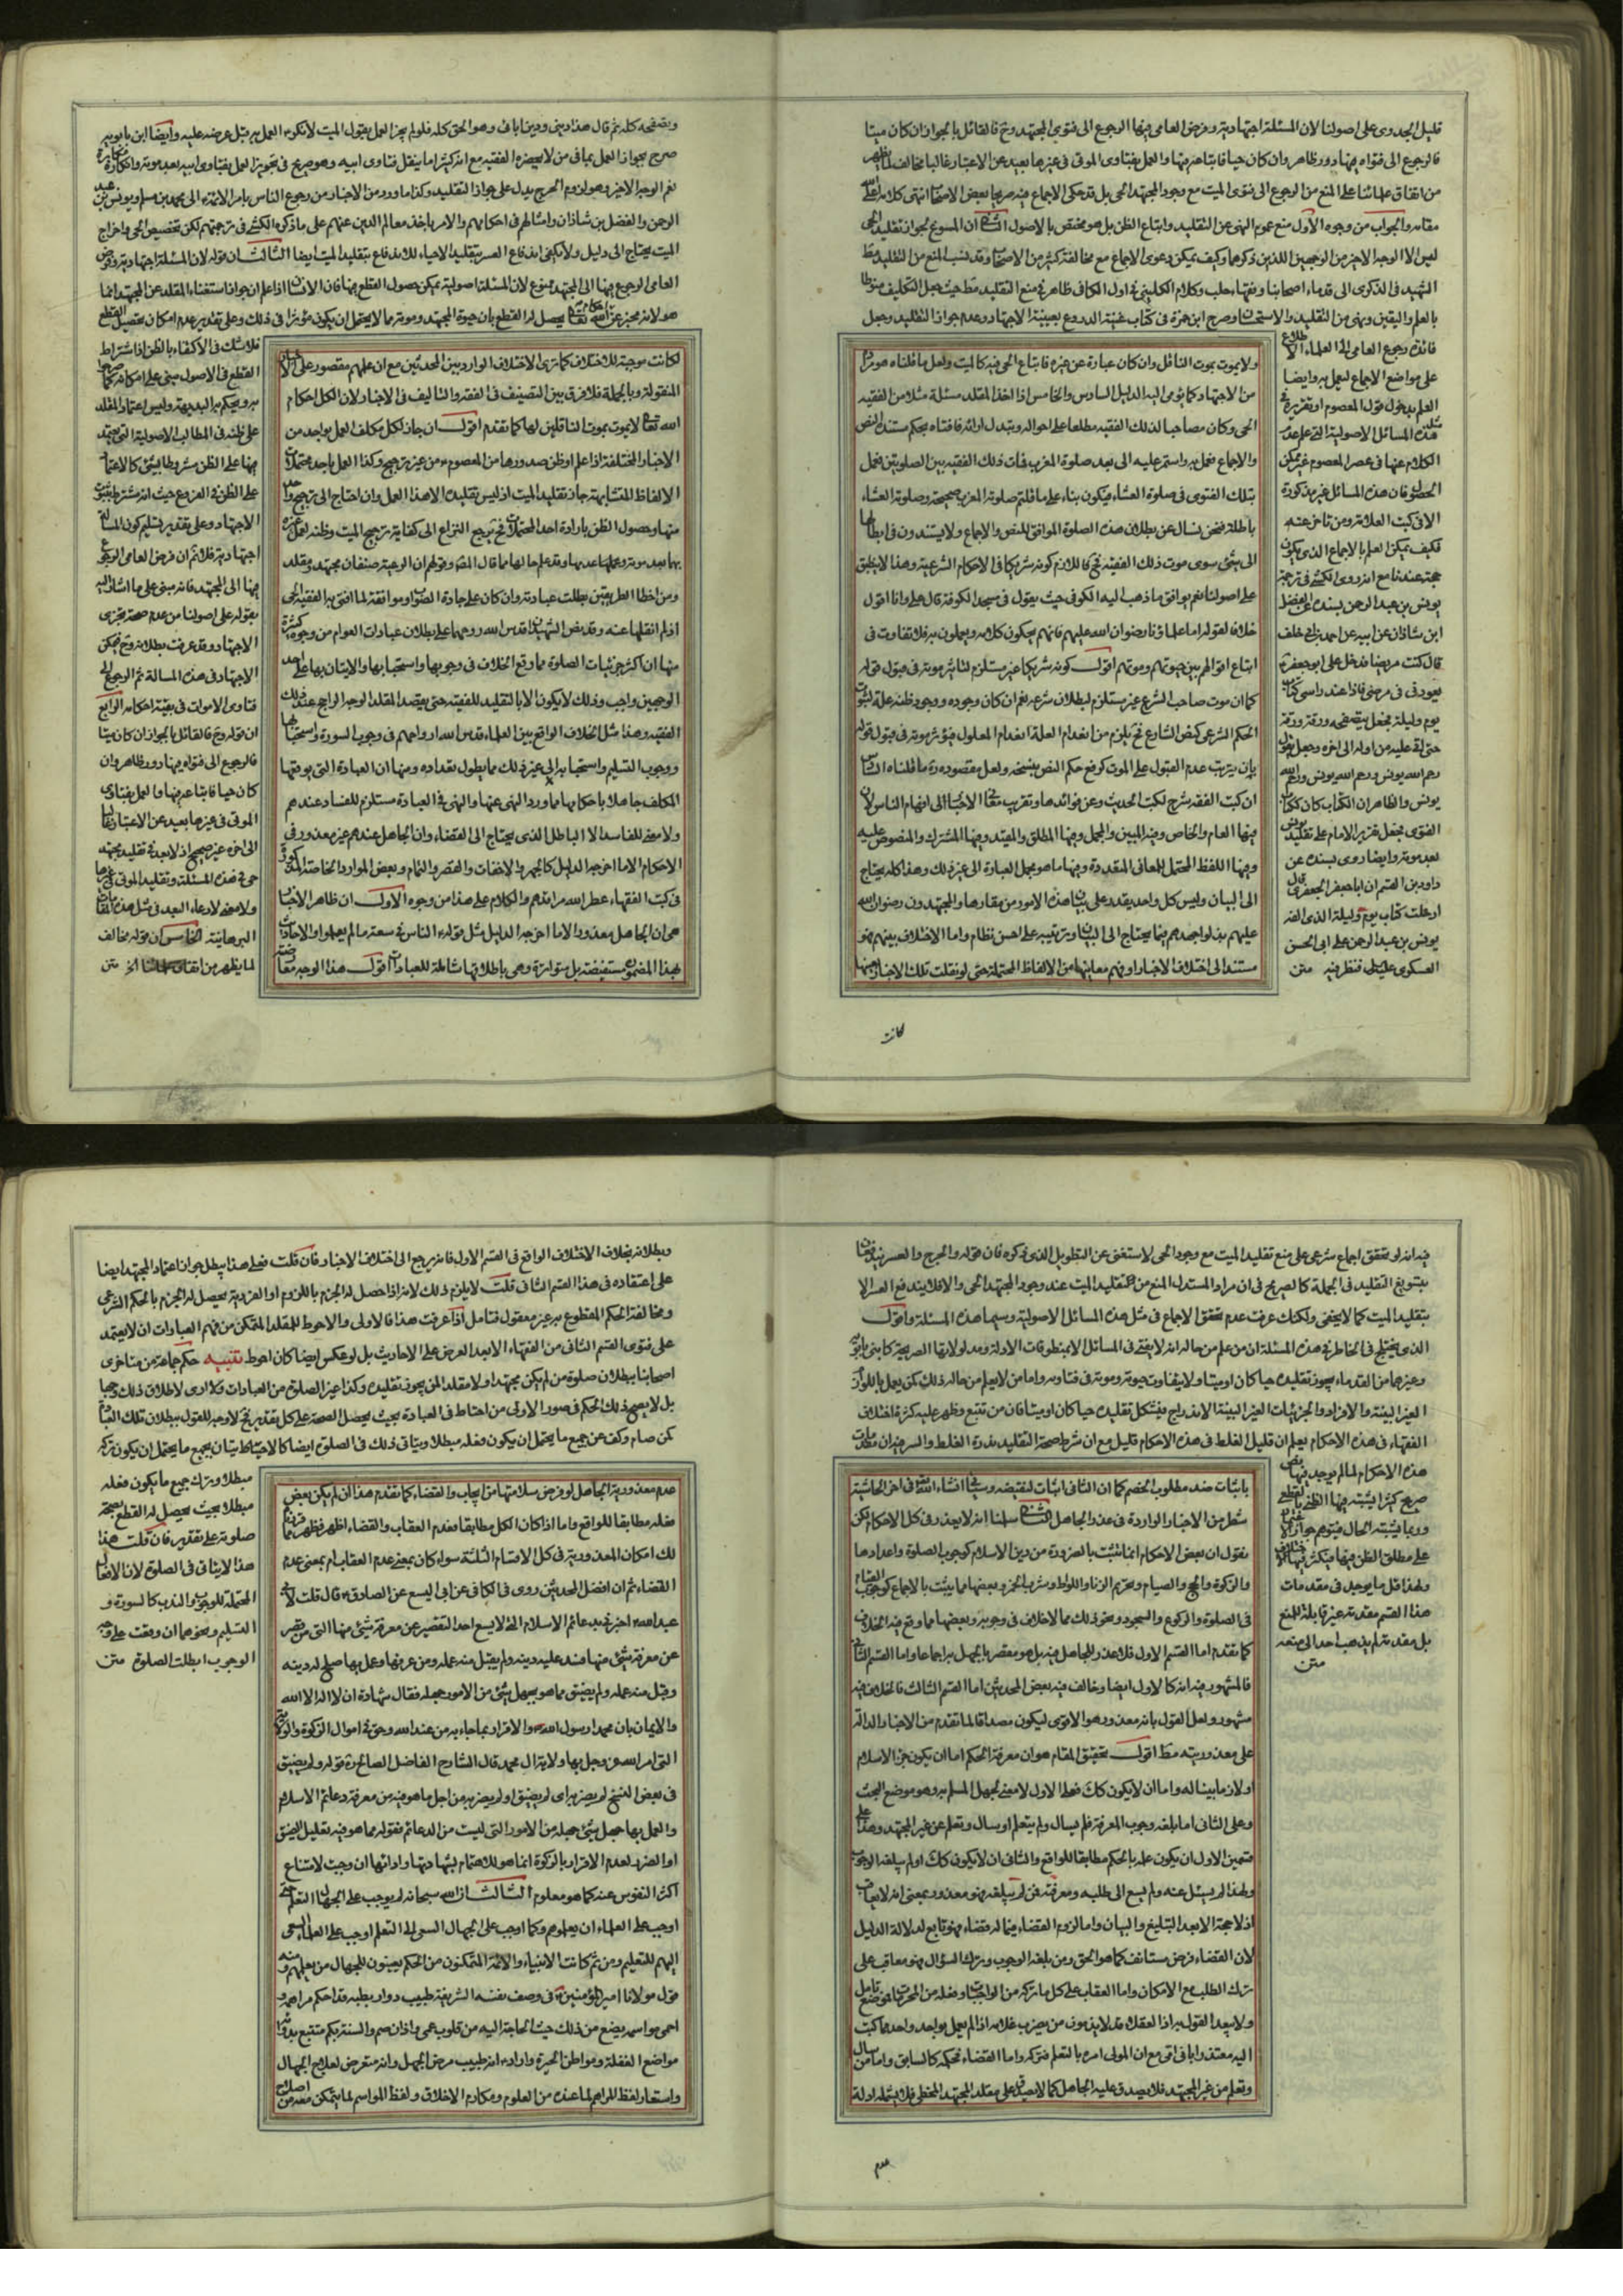 قليل الجدوى على اصولنا لان المسئلة اجتهادية وفرض العامى فيها الرجوع الى فتوى المجتهد وح فالقائل بالجواز ان كان ميتا
فالرجوع الى فتواه فيها دور ظاهر وان كان حيا فاتباعه فيها والعمل بفتاوى الموتى فى غيرها بعيد عن الاعتبار غالبا مخالف لما يظهر
من اتفاق علمائنا على المنع من الرجوع الى فتوى الميت مع وجود المجتهد الحى بل قد حكى الاجماع فيه صريحا بعض الاصحاب انتهى كلامه اعلى الله
مقامه والجواب من وجوه الاول منع عموم النهى عن التقليد واتباع الظن بل هو مختص بالاصول الثانى ان المسوغ لجواز تقليد الحى
ليس الا الوجه الاخير من الوجهين اللذين ذكرهما وكيف يمكن دعوى الاجماع مع مخالفة كثير من الاصحاب وقد نسب المنع من التقليد مط
الشهيد فى الذكرى الى قدماء اصحابنا وفقهاء حلب وكلام الكلينى فى اول الكافى ظاهر فى منع التقليد مط حيث جعل التكليف منوطا
بالعلم واليقين ونهى من التقليد والاستحسان وصرح ابن حمزة فى كتاب غنية النزوع بعينية الاجتهاد وعدم جواز التقليد وجعل
فائدة رجوع العامى الى العلماء الاطلاع
على مواضع الاجماع ليعمل به وايضا
العلم بدخول قول المعصوم او تقريره فى
هذه المسائل الاصولية التى علم عدم
الكلام عنها فى عصر المعصوم غير ممكن
الحصول فان هذه المسائل غير مذكورة
الا فى كتب العلامة ومن تاخر عنه
فكيف يمكن العلم بالاجماع الذى يكون
حجة عندنا مع انه روى الكشى فى ترجمة
يونس بن عبد الرحمن بسنده عن الفضل
ابن شاذان عن ابيه عن احمد بن ابى خلف
قال كنت مريضا فدخل على ابو جعفر ع
يعودنى فى مرضى فاذا عند راسى كتاب
يوم وليلة فجعل يتصفحه ورقة ورقة
حتى اتى عليه من اوله الى اخره وجعل يقول
رحم الله يونس رحم الله يونس رحم الله
يونس والظاهر ان الكتاب كان كتاب
الفتوى فحصل تقرير الامام على تقليد يونس
بعد موته وايضا روى بسنده عن
داود بن القسم ان ابا جعفر الجعفرى قال
ادخلت كتاب يوم وليلة الذى الفه
يونس بن عبد الرحمن على ابى الحسن
العسكرى عليه السلام فنظر فيه متن
ولا يموت بموت القائل وان كان عبارة عن غيره فاتباع الحى فيه كالميت ولعل ما قلناه هو مراد
من الاجتهاد كما يومى اليه الدليل السادس والخامس اذا اخذ المقلد مسئلة مثلا من الفقيه
الحى وكان مصاحبا لذلك الفقيه مطلعا على احواله وتبدل ارائه فافتاه بحكم مستند النص
والاجماع فعمل به واستمر عليه الى بعد صلوة المغرب فمات ذلك الفقيه بين الصلوتين فعمل
بتلك الفتوى فى صلوة العشاء فيكون بناء على ما قلتم صلوته المغرب صحيحة وصلوته العشاء
باطلة فنحن نسال عن بطلان هذه الصلوة الموافق للنص والاجماع ولا يستندون فى ابطالها
الى شئ سوى موت ذلك الفقيه فح فاللازم كونه شريكا فى الاحكام الشرعية وهذا لا ينطبق
على اصولنا نعم يوافق ما ذهب اليه الكوفى حيث يقول فى مسجد الكوفة قال على وانا اقول
خلافا لقوله اما علماؤنا رضوان الله عليهم فانهم يحكون كلامه ويعملون به فلا تفاوت فى
اتباع اقوالهم بين حيوتهم وموتهم اقول كونه شريكا غير مستلزم لتاثير موته فى قبول قوله
كما ان موت صاحب الشرع غير مستلزم لبطلان شرعه نعم ان كان وجوده ووجود ظنه علة لثبوت
الحكم الشرعى كنص الشارع فح يلزم من انعدام العلة انعدام المعلول فيؤثر موته فى قبول قوله
بان يترتب عدم القبول على الموت كرفع حكم النص بنسخه ولعل مقصوده ره ما قلناه السادس
ان كتب الفقه شرح لكتب الحديث ومن فوائدها وتقريب معانى الاخبار الى افهام الناس لان
فيها العام والخاص وفيه المبين والمجمل وفيها المطلق والمقيد وفيها المشترك والمنصوص عليه
وفيها اللفظ المحتمل للمعانى المتعددة وفيها ما هو مجمل العبارة الى غير ذلك وهذا كله يحتاج
الى البيان وليس كل واحد يقدر على بيان هذه الامور من مقارها والمجتهدون رضوان الله
عليهم بذلوا جهدهم فيما يحتاج الى البيان وترتيبه على احسن نظام واما الاختلاف بينهم فهو
مستند الى اختلاف الاخبار او فهم معانيها من الالفاظ المحتملة حتى لو نقلت تلك الاخبار
كانت
وبصفحه كله ثم قال هذا دينى ودين ابائى وهو الحق كله فلو لم يجز العمل بقول الميت لانكره العمل به قبل عرضه عليه وايضا ابن بابويه
صرح بجواز العمل بما فى من لا يحضره الفقيه مع انه كثيرا ما ينقل فتاوى ابيه وهو صريح فى تجويز العمل بفتاوى ابيه بعد موته
نعم الوجه الاخير وهو لزوم الحرج يدل على جواز التقليد وكذا ما ورد من الاخبار من رجوع الناس بامر الائمة الى محمد بن مسلم ويونس بن عبد
الرحمن والفضل بن شاذان وامثالهم فى احكامهم والامر باخذ معالم الدين عنهم على ما ذكره الكشى فى ترجمتهم لكن تخصيص الحى واخراج
الميت يحتاج الى دليل ولا يكفى اندفاع العسر بتقليد الاحياء لاندفاعه بتقليد الميت ايضا الثالث ان قوله لان المسئلة اجتهادية وفرض
العامى الرجوع فيها الى المجتهد ممنوع لان المسئلة اصولية يمكن حصول القطع فيها فان الانسان اذا علم ان جواز استفتاء المقلد عن المجتهد انما
هو لانه مخبر عن احكام الله تعالى يحصل له القطع بان حيوة المجتهد وموته مما لا يحتمل ان يكون مؤثرا فى ذلك وعلى تقدير عدم امكان تحصيل القطع
فلا شك فى الاكتفاء بالظن اذ اشتراط
القطع فى الاصول مبنى على امكانه كما صرحوا
به ويحكم به البديهة وليس اعتماد المقلد
على ظنه فى المطالب الاصولية التى يعتمد
فيها على الظن مشروطا بشئ كالاعتماد
على الظن فى الفروع حيث انه مشترط بثبوت
الاجتهاد وعلى تقدير تسليم كون المسالة
اجتهادية فلا ثم ان فرض العامى الرجوع
فيها الى المجتهد فانه مبنى على ما اشار اليه
بقوله على اصولنا من عدم صحة تجزى
الاجتهاد وقد عرفت بطلانه وح يمكن
الاجتهاد فى هذه المسالة ثم الرجوع الى
فتاوى الاموات فى بقية احكامه الرابع
ان قوله وح فالقائل بالجواز ان كان ميتا
فالرجوع الى فتواه فيها دور ظاهر وان
كان حيا فاتباعه فيها والعمل بفتاوى
الموتى فى غيرها بعيد عن الاعتبار غالبا
الى اخره غير صحيح اذ لا بعد فى تقليد مجتهد
حى فى هذه المسئلة وتقليد الموتى فى غيرها
ولا معنى لادعاء البعد فى مثل هذه المقامات
البرهانية الخامس ان قوله مخالف
لما يظهر من اتفاق علمائنا اخ متن
لكانت موجبة للاختلاف كما ترى الاختلاف الوارد بين المحدثين مع ان علمهم مقصور على الاخبار
المنقولة وبالجملة فلا فرق بين التصنيف فى الفقه والتاليف فى الاخبار لان الكل احكام
الله تعالى لا يموت بموت الناقلين لها كما تقدم اقول ان جاز لكل مكلف العمل بواحد من
الاخبار المختلفة اذا علم او ظن صدورها من المعصوم ع من غير ترجيح وكذا العمل باحد محتملات
الالفاظ المتشابهة جاز تقليد الميت اذ ليس تقليده الا هذا العمل وان احتاج الى ترجيح واحد
منها وحصول الظن بارادة احد المحتملات فح يرجع النزاع الى كفاية ترجيح الميت وظنه لعمل غيره
بها بعد موته وعملها عدمها وقد علم حالها مما قال المص وقولهم ان الرعية صنفان مجتهد ومقلد
ومن اخطا الطريقين بطلت عبادته وان كان على جادة الصواب وموافقة لما افتى به الفقيه الحى
اذ لم انقلها عنه وقد نص الشهيدان قدس الله روحهما على بطلان عبادات العوام من وجوه كثيرة
منها ان اكثر جزئيات الصلوة مما وقع الخلاف فى وجوبها واستحبابها والاتيان بها على احد
الوجهين واجب وذلك لا يكون الا بالتقليد للفقيه حتى يقصد المقلد الوجه الراجح عند ذلك
الفقيه وهذا مثل الخلاف الواقع بين العلماء قدس الله ارواحهم فى وجوب السورة واستحبابها
ووجوب التسليم واستحبابه الى غير ذلك مما يطول تعداده ومنها ان العبادة التى يوقعها
المكلف جاهلا باحكامها مما ورد النهى عنها والنهى فى العبادة مستلزم للفساد عندهم
ولا معنى للفاسد الا الباطل الذى يحتاج الى القضاء وان الجاهل عندهم غير معذور فى
الاحكام الا ما اخرجه الدليل كالجهر والاخفات والقصر والتمام وبعض الموارد الخاصة المذكورة
فى كتب الفقهاء عطر الله مراقدهم والكلام على هذا من وجوه الاول ان ظاهر الاخبار
هى ان الجاهل معذور الا ما اخرجه الدليل مثل قوله ع الناس فى سعة ما لم يعلموا والاحاديث
بهذا المضمون مستفيضة بل متواترة وهى باطلاقها شاملة للعبادات اقول هذا الوجه معارضة
فيه انه لو تحقق اجماع شرعى على منع تقليد الميت مع وجود الحى لاستغنى عن التطويل الذى ذكره فان قوله والحرج والعسر يندفعان
بتسويغ التقليد فى الجملة كالصريح فى ان مراد المستدل المنع من تقليد الميت عند وجود المجتهد الحى والا فلا يندفع العسر الا
بتقليد الميت كما لا يخفى ولكنك عرفت عدم تحقق الاجماع فى مثل هذه المسائل الاصولية وسيما هذه المسئلة واقول
الذى يختلج فى الخاطر فى هذه المسئلة ان من علم من حاله انه لا يفتى فى المسائل الا بمنطوقات الادلة ومدلولاتها الصريحة كابنى بابويه
وغيرهما من القدماء يجوز تقليده حيا كان او ميتا ولا يتفاوت حيوته وموته فى فتاويه واما من لا يعلم من حاله ذلك كمن يعمل باللوازم
الغير البينة والافراد والجزئيات الغير البينة الاندراج فيشكل تقليده حيا كان او ميتا فان من تتبع وظهر عليه كثرة اختلاف
الفقهاء فى هذه الاحكام يعلم ان قليل الغلط فى هذه الاحكام قليل مع ان شرط صحة التقليد ندرة الغلط والسر فيه ان مقدمات
هذه الاحكام لما لم يوجد فيها نص
صريح كثيرا يشتبه فيها الظنى بالقطعى
وربما يشتبه الحال فيتوهم جواز الاعتماد
على مطلق الظن فيها فيكثر فيها الاختلاف
ولهذا قل ما يوجد فى مقدمات
هذا القسم مقدمة غير قابلة للمنع
بل مقدمة لم يذهب احد الى منعه
متن
باثبات ضد مطلوب الخصم كما ان الثانى اثبات لنقيضه وسياتى انشاء الله تعالى فى اخر الحاشية
شطر من الاخبار الواردة فى عذر الجاهل الثانى سلمنا انه لا يعذر فى كل الاحكام لكن
نقول ان بعض الاحكام انما ثبت بالضرورة من دين الاسلام كوجوب الصلوة واعدادها
والزكوة والحج والصيام وتحريم الزنا واللواط وشرب الخمر وبعضها مما يثبت بالاجماع كوجوب القيام
فى الصلوة والركوع والسجود ونحو ذلك مما لا خلاف فى وجوبه وبعضها مما وقع فيه الخلاف
كما تقدم اما القسم الاول فلا عذر للجاهل فيه بل هو مقصر بالجهل به اجماعا واما القسم الثانى
فالمشهور فيه انه كالاول ايضا وخالف فيه بعض المحدثين اما القسم الثالث فالخلاف فيه
مشهور ولعل القول بانه معذور هو الاقوى ليكون مصداقا لما تقدم من الاخبار الدالة
على معذوريته مط اقول تحقيق المقام هو ان معرفة الحكم اما ان يكون جزء الاسلام
او لازما بينا له واما ان لا يكون كك فعلى الاول لا معنى لجهل المسلم به وهو موضع البحث
وعلى الثانى اما بلغه وجوب المعرفة فلم يسال ولم يتعلم او سال وتعلم عن غير المجتهد وهذا على
قسمين الاول ان يكون عمله بالحكم مطابقا للواقع والثانى ان لا يكون كك او لم يبلغه الوجوب
ولهذا لم يسئل عنه ولم يسع الى طلبه ومعرفته فمن لم يبلغه فهو معذور بمعنى انه لا يعاقب
اذ لا حجة الا بعد التبليغ والبيان واما لزوم القضاء فيما له قضاء فهو تابع لدلالة الدليل
لان القضاء فرض مستانف كما هو الحق ومن بلغه الوجوب وترك السؤال فهو معاقب على
ترك الطلب مع الامكان واما العقاب على كل ما تركه من الواجبات وفعله من المحرمات فموضع تامل
ولا يبعد القول به اذ العقلاء قد لا يذمون من يضرب غلامه اذا لم يعمل بواحد واحد مما كتب
اليه معتذرا بانى امى مع ان المولى امره بالتعلم فتركه واما القضاء فحكمه كالسابق واما من سال
وتعلم من غير المجتهد فلا يصدق عليه الجاهل كما لا يصدق على مقلد المجتهد المخطى فلا يشمله ادلة
عدم
وبطلانه بخلاف الاختلاف الواقع فى القسم الاول فانه يرجع الى اختلاف الاخبار فان قلت فعلى هذا يبطل جواز اعتماد المجتهد ايضا
على اعتقاده فى هذا القسم الثانى قلت لا يلزم ذلك لانه اذا حصل له الجزم باللزوم او الفردية يحصل له الجزم بالحكم الشرعى
ومخالفة الحكم المقطوع به غير معقول فتامل اذا عرفت هذا فالاولى والاحوط للمقلد المتمكن من فهم العبارات ان لا يعتمد
على فتوى القسم الثانى من الفقهاء الا بعد العرض على الاحاديث بل لو عكس ايضا كان احوط تنبيه حكم جماعة من متاخرى
اصحابنا ببطلان صلوة من لم يكن مجتهدا ولا مقلدا لمن يجوز تقليده وكذا غير الصلوة من العبادات ولا ارى لاطلاق ذلك وجها
بل لا يصح ذلك الحكم فى صور الاولى من احتاط فى العبادة بحيث يحصل الصحة على كل تقدير فح لا وجه للقول ببطلان تلك العبادة
كمن صام وكف عن جميع ما يحتمل ان يكون فعله مبطلا ويتاتى ذلك فى الصلوة ايضا كالاحتياط بان يجمع ما يحتمل ان يكون تركه
مبطلا ويترك جميع ما يكون فعله
مبطلا بحيث يحصل له القطع بصحة
صلوته على تقدير فان قلت هذا
هذا لا يتاتى فى الصلوة لان الافعال
المحتملة للوجوب والندب كالسورة و
التسليم ونحوهما ان وقعت على وجه
الوجوب ابطلت الصلوة متن
عدم معذورية الجاهل لو فرض سلامتها من ايجاب القضاء كما تقدم هذا ان لم يكن بعض
فعله مطابقا للواقع واما اذا كان الكل مطابقا فعدم العقاب والقضاء اظهر فظهر مما قررنا
لك امكان المعذورية فى كل الاقسام الثلثة سواء كان بمعنى عدم العقاب ام بمعنى عدم
القضاء ثم ان افضل المحدثين روى فى الكافى عن ابى اليسع عن الصادق ع قال قلت لابى
عبد الله ع اخبرنى بدعائم الاسلام التى لا يسع احدا التقصير عن معرفة شئ منها التى من قصر
عن معرفة شئ منها فسد عليه دينه ولم يقبل منه عمله ومن عرفها وعمل بها صلح له دينه
وقبل منه عمله ولم يضيق مما هو بجهل شئ من الامور جهله فقال شهادة ان لا اله الا الله
والايمان بان محمدا رسول الله ص والاقرار بما جاء به من عند الله وحق فى اموال الزكوة والولاية
التى امر الله عز وجل بها ولاية ال محمد قال الشارح الفاضل الصالح ره قوله ولم يضيق
فى بعض النسخ لم يضر به اى لم يضيق او لم يضر به من اجل ما هو فيه من معرفة دعائم الاسلام
والعمل بها جهل شئ جهله من الامور التى ليست من الدعائم فقوله مما هو فيه تعليل لعدم الضيق
او الضرر لعدم الاقرار بالزكوة انما هو للاهتمام بشانها وادائها ان وجبت لامتناع
اكثر النفوس عنه كما هو معلوم الثالث ان الله سبحانه لم يوجب على الجهال التعلم حتى
اوجب على العلماء ان يعلموهم وكما اوجب على الجهال السعى الى التعلم اوجب على العلماء السعى
اليهم للتعليم ومن ثم كانت الانبياء والائمة المتمكنون من الحكم يعينون للجهال من يعلمهم ومنه
قول مولانا امير المؤمنين ع فى وصف نفسه الشريفة طبيب دوار بطبه قد احكم مراهمه و
احمى مواسمه يضع من ذلك حيث الحاجة اليه من قلوب عمى واذان صم والسنة بكم متتبع بدوائه
مواضع الغفلة ومواطن الحيرة واراد ع انه طبيب مرض الجهل وانه متعرض لعلاج الجهال
واستعار لفظ المراهم لما عنده من العلوم ومكارم الاخلاق ولفظ المواسم لما يتمكن منه من اصلاح